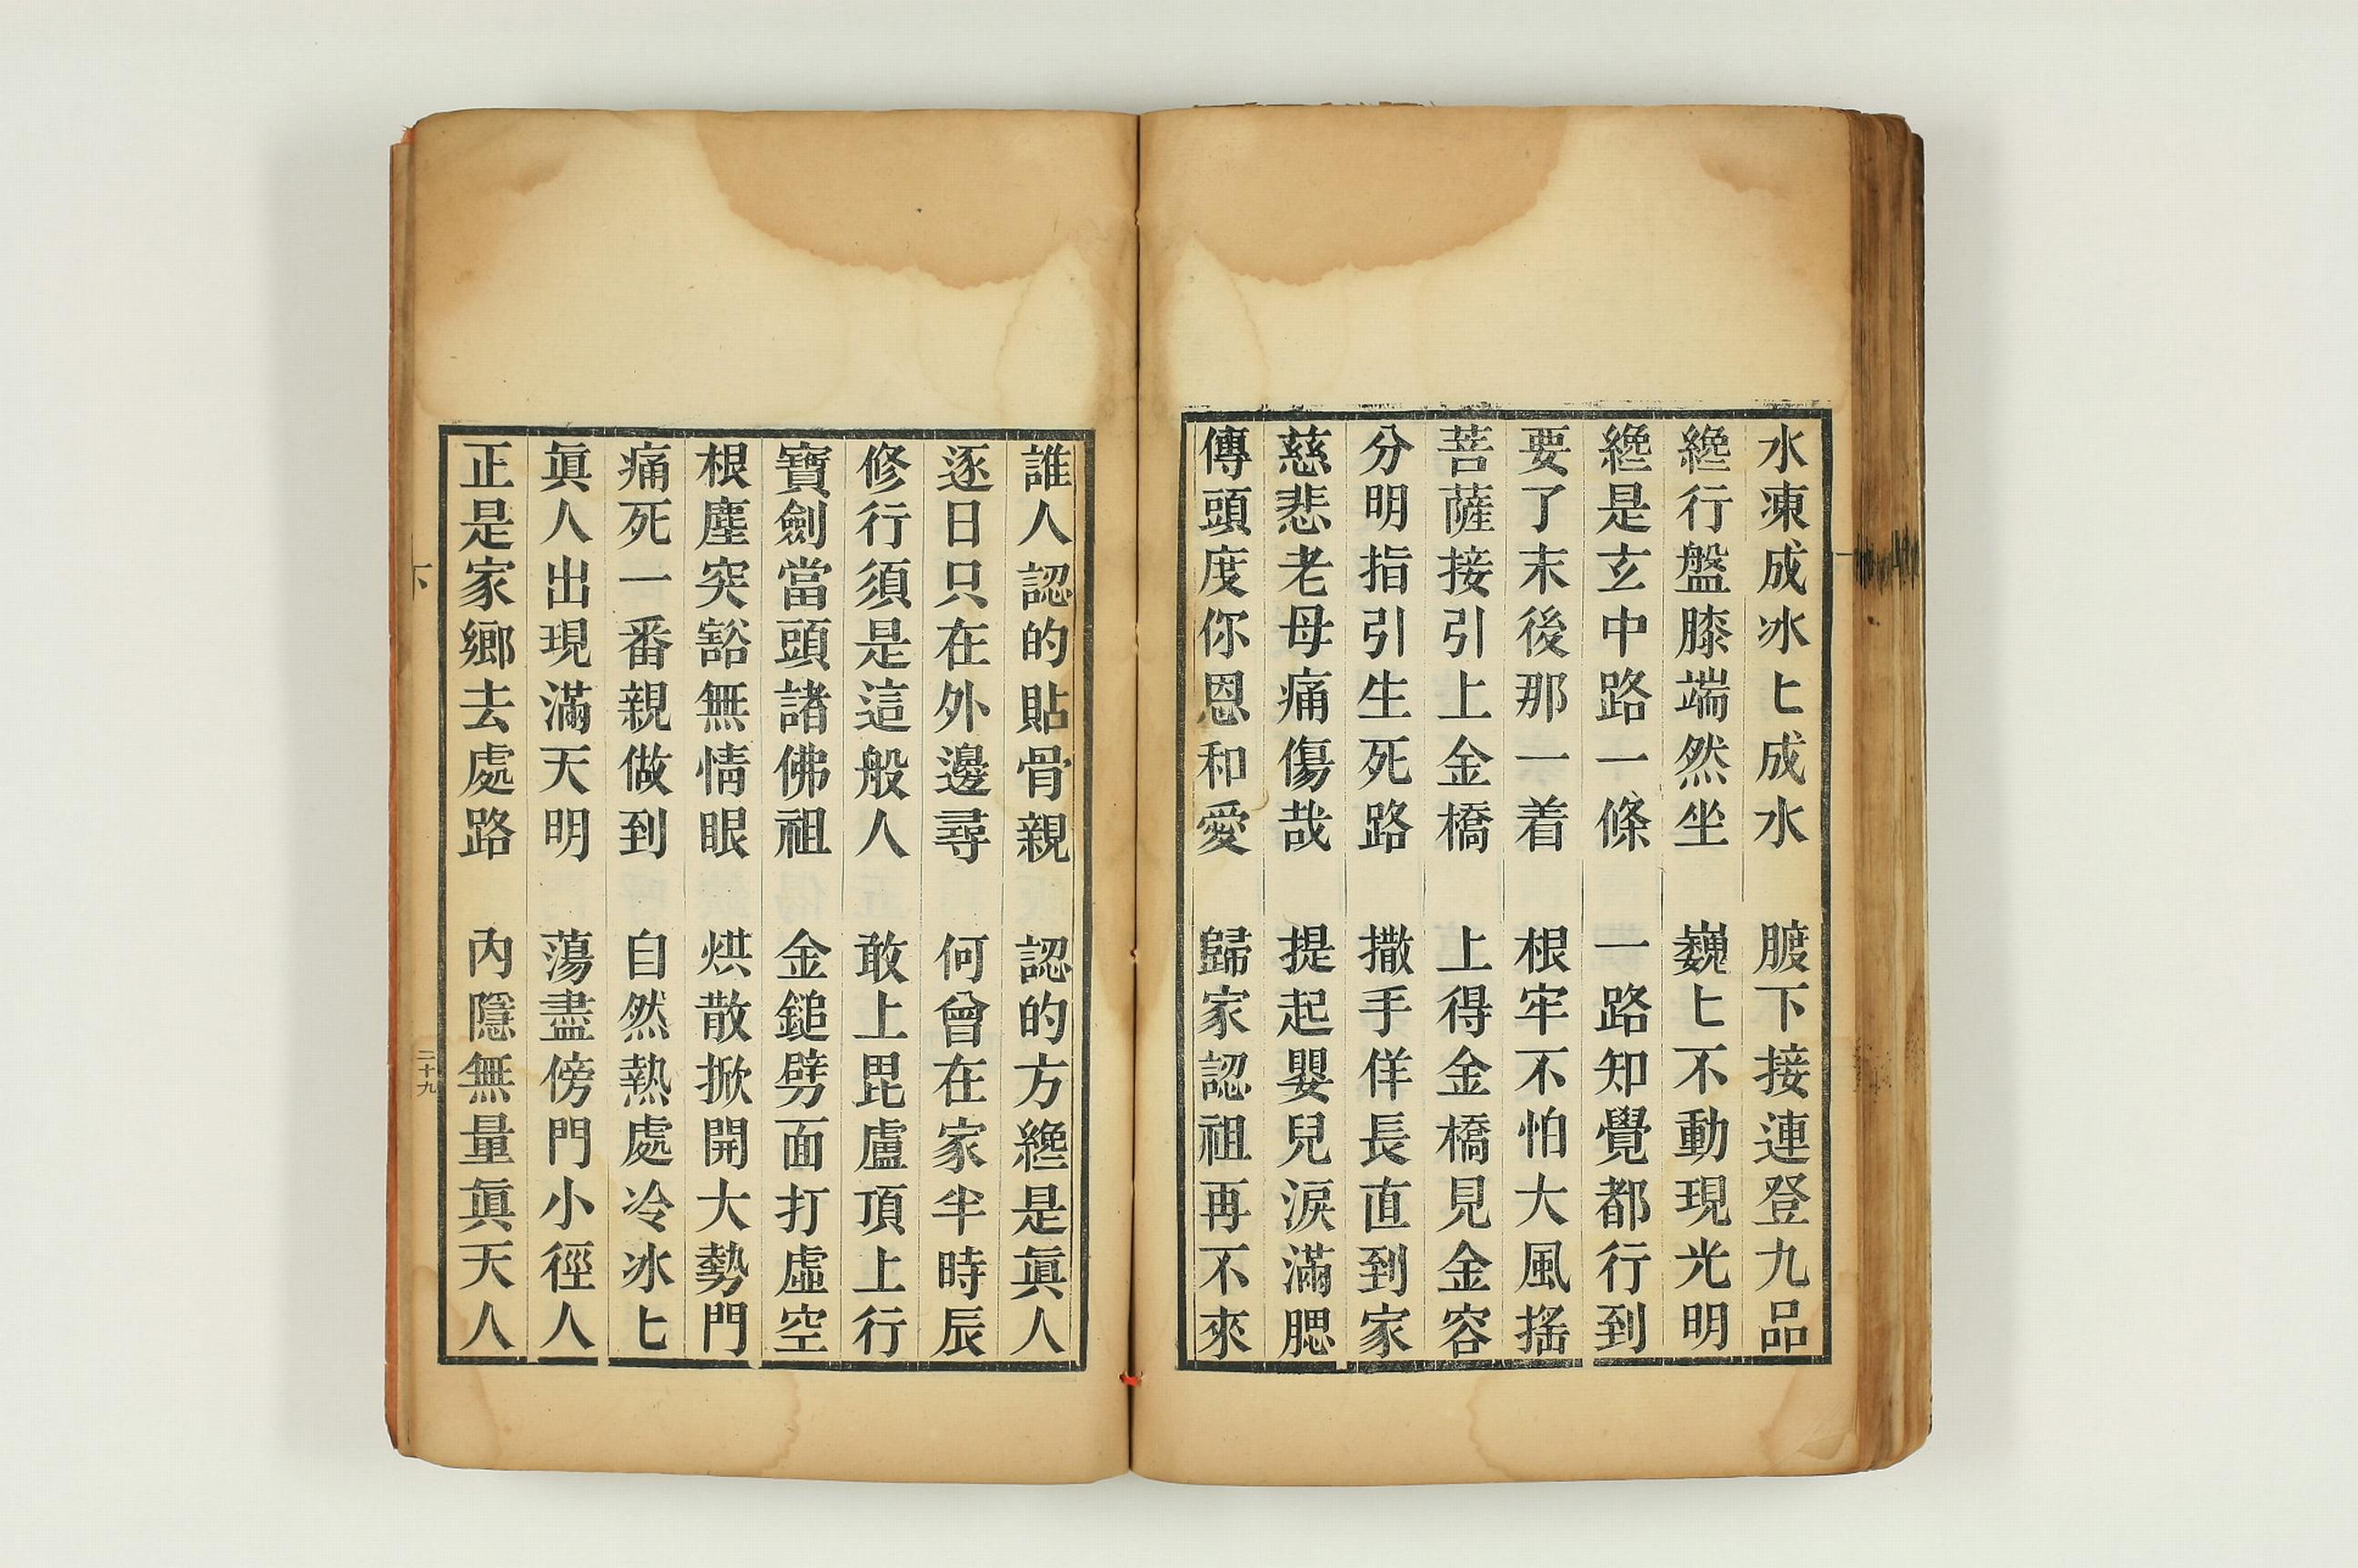 水凍成冰〻成水　臕下接連登九品
纔行盤膝端然坐　巍〻不動現光明
纔是玄中路一條　一路知覺都行到
要了末後那一着　根牢不怕大風搖
菩薩接引上金橋　上得金橋見金容
分明指引生死路　撒手佯長直到家
慈悲老母痛傷哉　提起嬰兒淚滿腮
傳頭度你恩和愛　歸家認祖再不來
誰人認的貼骨親　認的方纔是眞人
逐日只在外邊尋　何曾在家半時辰
修行須是這般人　敢上毘盧頂上行
寶劍當頭諸佛祖　金鎚劈面打虛空
根塵突豁無情眼　烘散掀開大勢門
痛死一番親做到　自然熱處冷冰〻
眞人出現滿天明　蕩盡傍門小徑人
正是家鄉去處路　內隱無量眞天人
下
二十九